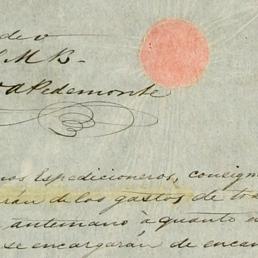 de v
M B.
A Pedemonte
nos Espedicioneros, consign
rán de los gastos de tra
antemano à quanto
se encargarán de encam